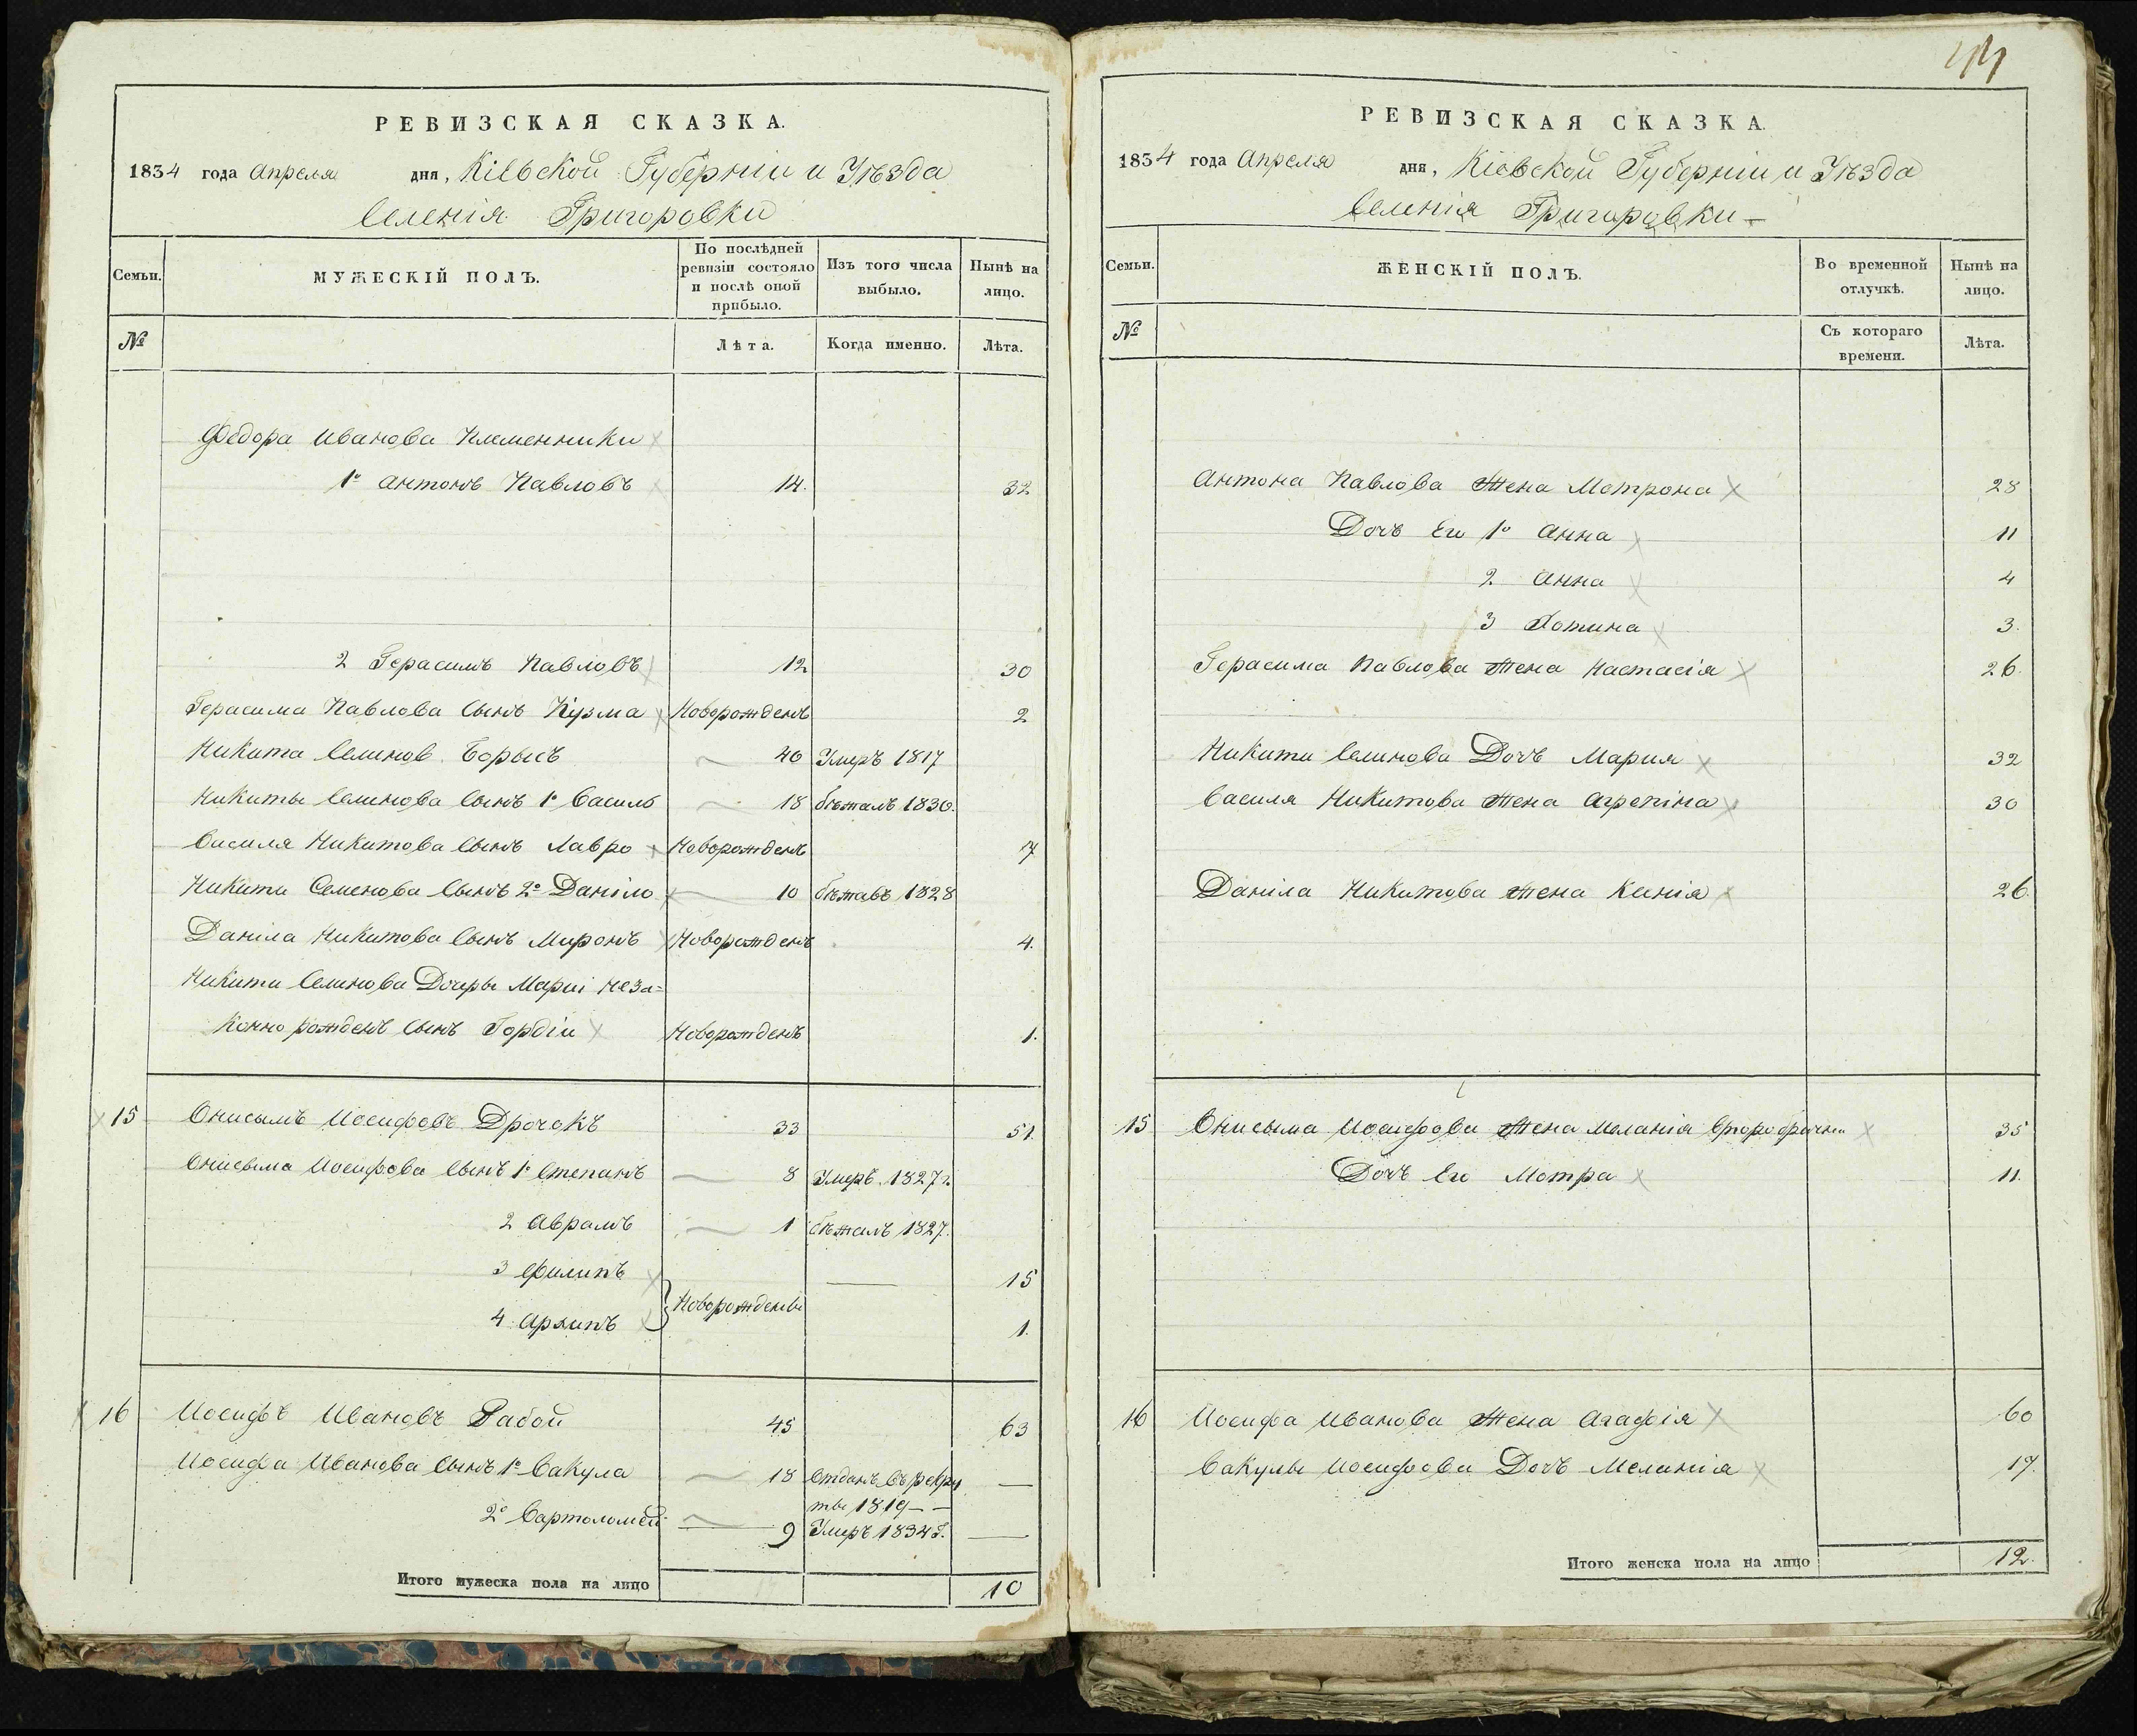 РЕВИЗСКАЯ СКАЗКА.
1834 года Апреля дня, Кіевской Губерніи и Уѣзда
Селенія Григоровки
Семьи. МУЖЕСКІЙ ПОЛЪ. По послѣдней ревизіи состояло и послѣ оной прибыло. Изъ того числа выбыло. Нынѣ на лицо.
№ Лѣта. Когда именно. Лѣта.
Федора Иванова Племенники
1º Антонъ Павловъ 14. 32
2 Герасимъ Павловъ 12 30
Герасима Павлова Сынъ Кузма Новорожденъ 2
Никита Семенов Борысъ 40 Умеръ 1817
Никиты Семенова Сынъ 1º Василь 18 бѣжалъ 1830.
Василя Никитова Сынъ Лавро Новорожденъ 7
Никити Семенова Сынъ 2º Даніло 10 бѣжавъ 1828
Даніла Никитова Сынъ Миронъ Новорожденъ 4.
Никити Семенова Дочры Маріи Неза=
конно рожденъ Сынъ Гордіи Новорожденъ 1.
15 Онисымъ Иосифовъ Дрочокъ 33 51.
Онисыма Иосифова Сынъ 1º Степанъ 8 Умеръ 1827 г.
2 Аврамъ 1 бѣжалъ 1827.
3 Филипъ 15
Новорождены
4 Архипъ 1.
16 Иосифъ Ивановъ Рабой 45 63
Иосифа Иванова Сынъ 1º Вакула 18 Отданъ въ рекру
ты 1819 — —
2º Вартоломей 9 Умеръ 1834 г. —
Итого мужеска пола на лицо 10
РЕВИЗСКАЯ СКАЗКА.
1834 года Апреля дня, Кіевской Губерніи и Уѣзда
Селенія Григоровки —
Семьи. ЖЕНСКІЙ ПОЛЪ. Во временной отлучкѣ. Нынѣ на лицо.
№ Съ котораго времени. Лѣта.
Антона Павлова Жена Мотрона 28
Дочъ Ев 1º Анна 11
2 Анна 4
3 Хотина 3.
Герасима Павлова Жена Настасія 26.
Никити Семенова Дочъ Мария 32
Василя Никитова Жена Агрепіна 30
Даніла Никитова Жена Ксинія 26.
15 Онисыма Иосифова Жена Меланія второбрачна 35
Дочъ Ев Мотра 11.
16 Иосифа Иванова Жена Агафія 60
Вакулы Иосифова Дочъ Меланія 17.
Итого женска пола на лицо 12.